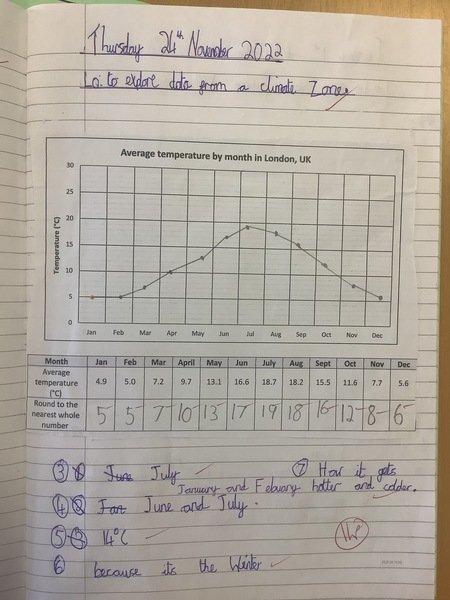 Thursday 24th November 2022
Lo: to explore data from a climate Zone.
Average temperature by month in London, UK
Temperature (°C)
30
25
20
15
10
5
0
Jan Feb Mar Apr May Jun Jul Aug Sep Oct Nov Dec
Month Jan Feb Mar April May June July Aug Sept Oct Nov Dec
Average temperature (°C) 4.9 5.0 7.2 9.7 13.1 16.6 18.7 18.2 15.5 11.6 7.7 5.6
Round to the nearest whole number 5 5 7 10 13 17 19 18 16 12 8 6
③ June July
④ Jan January and Febuary June and July.
⑤ 14°C
⑥ because its the Winter
⑦ How it gets hotter and colder.